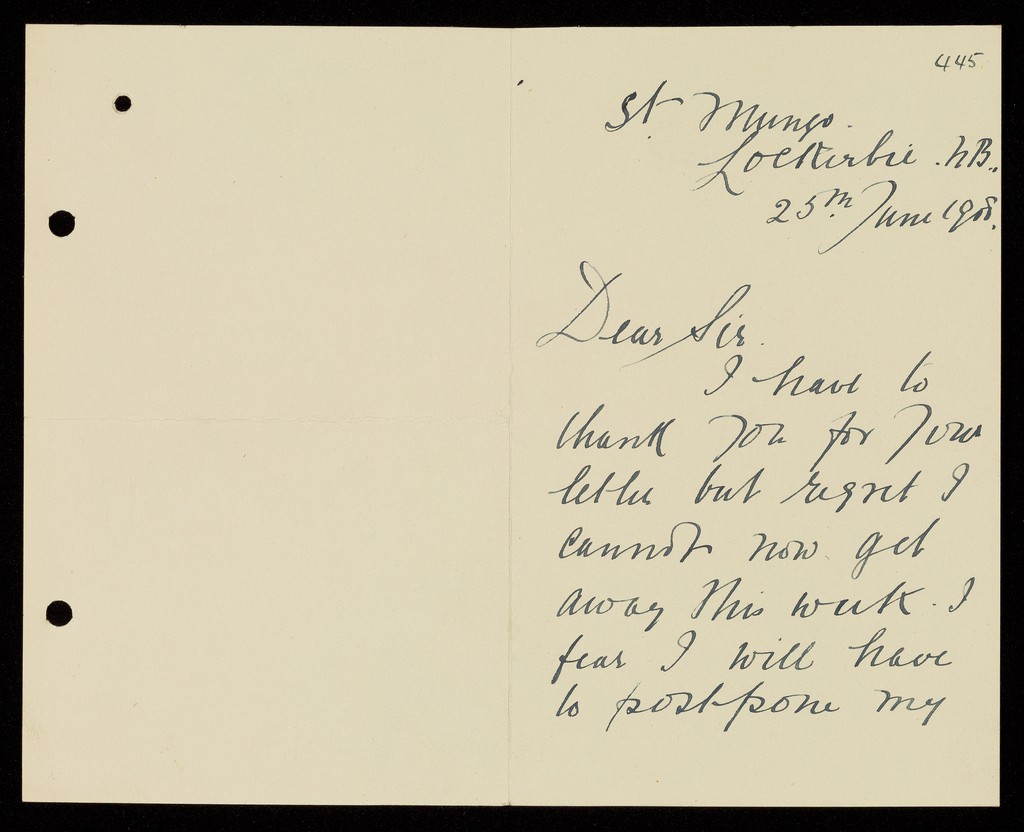 445
St. Mungo.
Lockerbie. N.B.,
25th June 1908.
Dear Sir.
I have to
thank you for your
letter but regret I
cannot now get
away this week. I
fear I will have
to postpone my